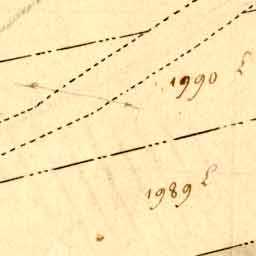 1990
1989